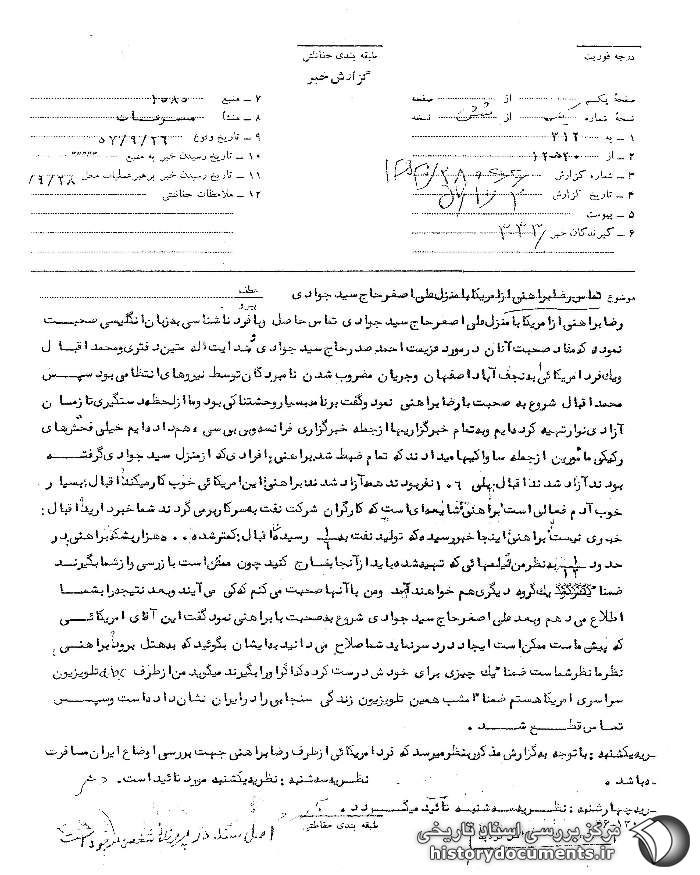 درجه فوریت
طبقه بندی حفاظتی
گزارش خبر
صفحه یکم از صفحه
نسخه شماره یک از شش نسخه
۱ ـ به ۳۱۲
۲ ـ از
۳ ـ شماره گزارش
۴ ـ تاریخ گزارش
۵ ـ پیوست
۶ ـ گیرندگان خبر ۳۳۳
۷ ـ منبع ۱۰۸۵
۸ ـ منشأ
۹ ـ تاریخ وقوع ۵۷/۹/۲۶
۱۰ ـ تاریخ رسیدن خبر به منبع
۱۱ ـ تاریخ رسیدن خبر برهبر عملیات محل /۹/۲۸
۱۲ ـ ملاحظات حفاظتی
موضوع تماس رضا براهنی از امریکا با منزل علی اصغر حاج سید جوادی
عطف
پیرو
رضا براهنی از امریکا با منزل علی اصغر حاج سید جوادی تماس حاصل و با فرد ناشناسی به زبان انگلیسی صحبت
نموده که مفاد صحبت آنان در مورد عزیمت احمد صدر حاج سید جوادی هدایت اله متین دفتری و محمد اقبال
و یک فرد امریکائی به نجف آباد اصفهان و جریان مضروب شدن نامبردگان توسط نیروهای انتظامی بود سپس
محمد اقبال شروع به صحبت با رضا براهنی نمود و گفت برنامه بسیار وحشتناکی بود و ما از لحظه دستگیری تا زمان
آزادی نوار تهیه کرده ایم و به تمام خبرگزاریها از جمله خبرگزاری فرانسه و بی بی سی هم داده ایم خیلی فحش های
رکیکی مأمورین از جمله ساواکیها میدادند که تمام ضبط شد براهنی با افرادی که از منزل سید جوادی گرفته
بودند آزاد شدند اقبال: بلی ۱۰۶ نفر بودند همه آزاد شدند براهنی: این امریکائی خوب کار میکند؟ اقبال: بسیار
خوب آدم فعالی است براهنی: شایعه ای است که کارگران شرکت نفت به سر کار برمی گردند شما خبر دارید؟ اقبال:
خبری نیست براهنی: اینجا خبر رسیده که تولید نفت به رسیده اقبال: کمتر شده هزار بشکه براهنی: در
حدود به نظر من فیلمهائی که تهیه شده باید از آنجا خارج کنید چون ممکن است بازرسی و از شما بگیرند
ضمنا" یک گروه دیگری هم خواهند آمد و من با آنها صحبت می کنم که کی می آیند و بعد نتیجه را بشما
اطلاع می دهم و بعد علی اصغر حاج سید جوادی شروع به صحبت با براهنی نمود گفت این آقای امریکائی
که پیش ماست ممکن است ایجاد دردسر نماید شما صلاح می دانید به ایشان بگوئید که به هتل برود؟ براهنی:
نظر ما نظر شماست ضمنا" یک چیزی برای خودش درست کرده که اگر او را بگیرند میگوید من از طرف abc تلویزیون
سراسری امریکا هستم ضمنا" امشب همین تلویزیون زندگی سنجابی را در ایران نشان داده است و سپس
تماس قطع شد.
ریه یکشنبه: با توجه به گزارش مذکور بنظر میرسد که فرد امریکائی از طرف رضا براهنی جهت بررسی اوضاع ایران مسافرت
ه باشد. نظریه سه شنبه: نظریه یکشنبه مورد تائید است.
ریه چهارشنبه: نظریه سه شنبه تأئید میگردد.
طبقه بندی حفاظتی
اصل سند در پرونده
مرکز بررسی اسناد تاریخی
historydocuments.ir